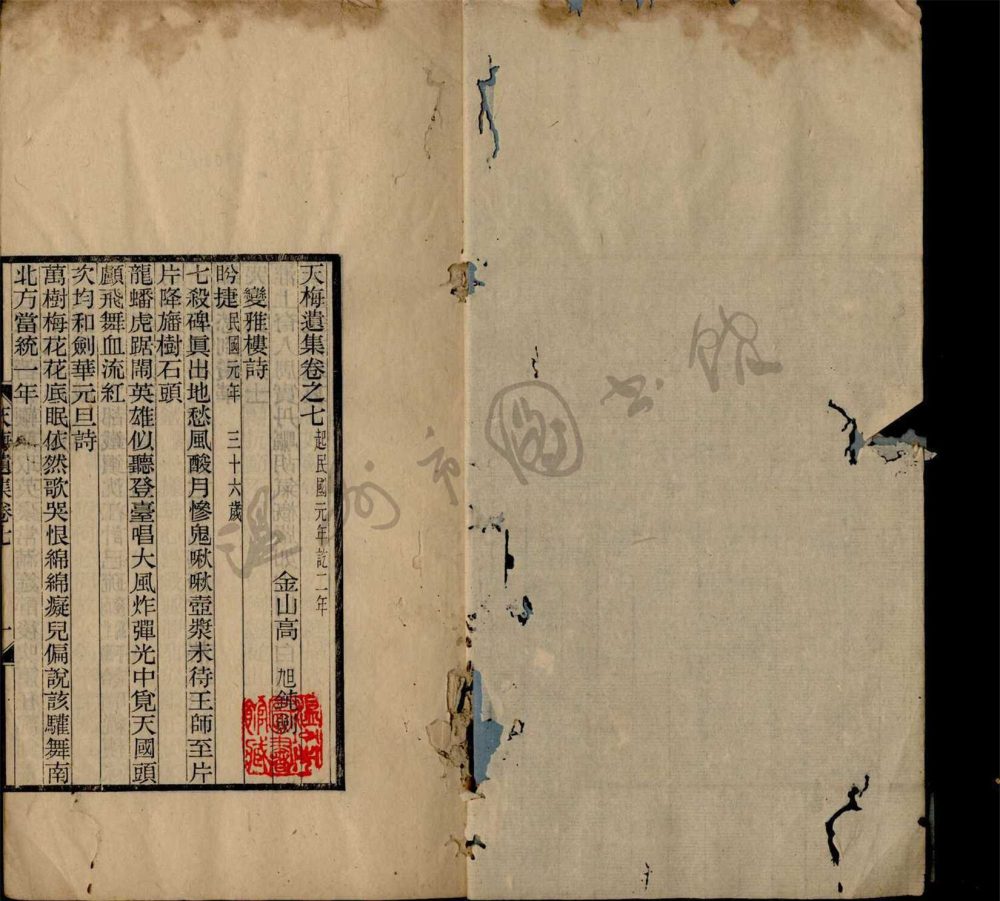 天梅遺集卷之七 起民國元年訖二年
金山高 旭鈍劍
變雅樓詩
盻捷 民國元年 三十六歲
七殺碑眞出地愁風酸月慘鬼啾啾壺漿未待王師至片
片降旛樹石頭
龍蟠虎踞鬧英雄似聽登臺唱大風炸彈光中覓天國頭
顱飛舞血流紅
次均和劍華元旦詩
萬樹梅花花底眠依然歌哭恨綿綿癡兒偏說該驩舞南
北方當統一年
天梅遺集卷七
一
溫州市圖書館
溫州市圖書館藏